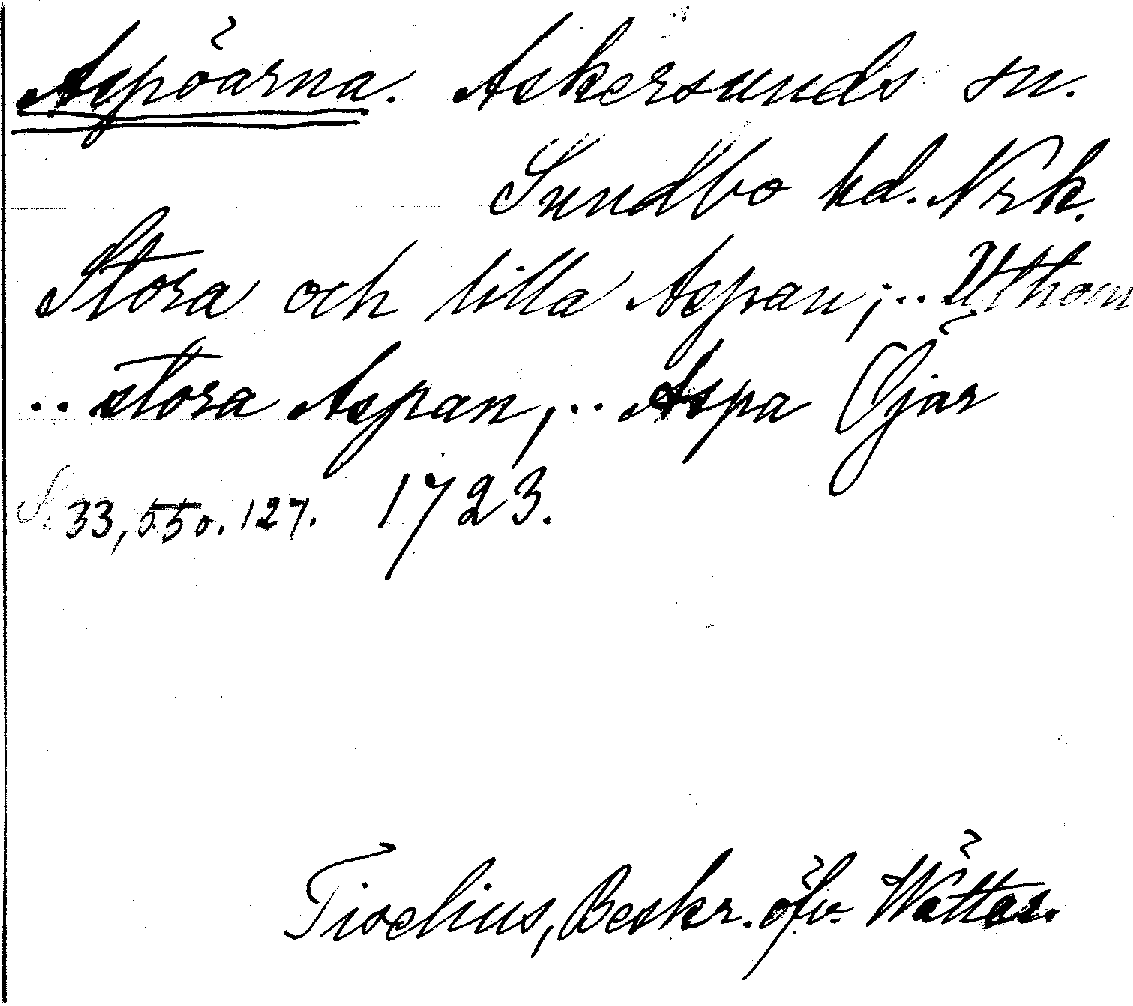 Aspöarna. Askersunds sn.
Sundbo hd. Nrk.
Stora och lilla Aspan;.. Uthom
.. stora Aspan,.. Aspa Öjar
S. 33, 55 o. 127. 1723.
Tiselius, Beskr. öfv. Wätter.